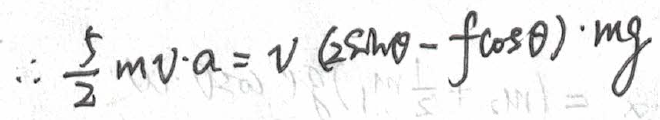 ∴ 5/2 mv·a = v (2sinθ - fcosθ)·mg